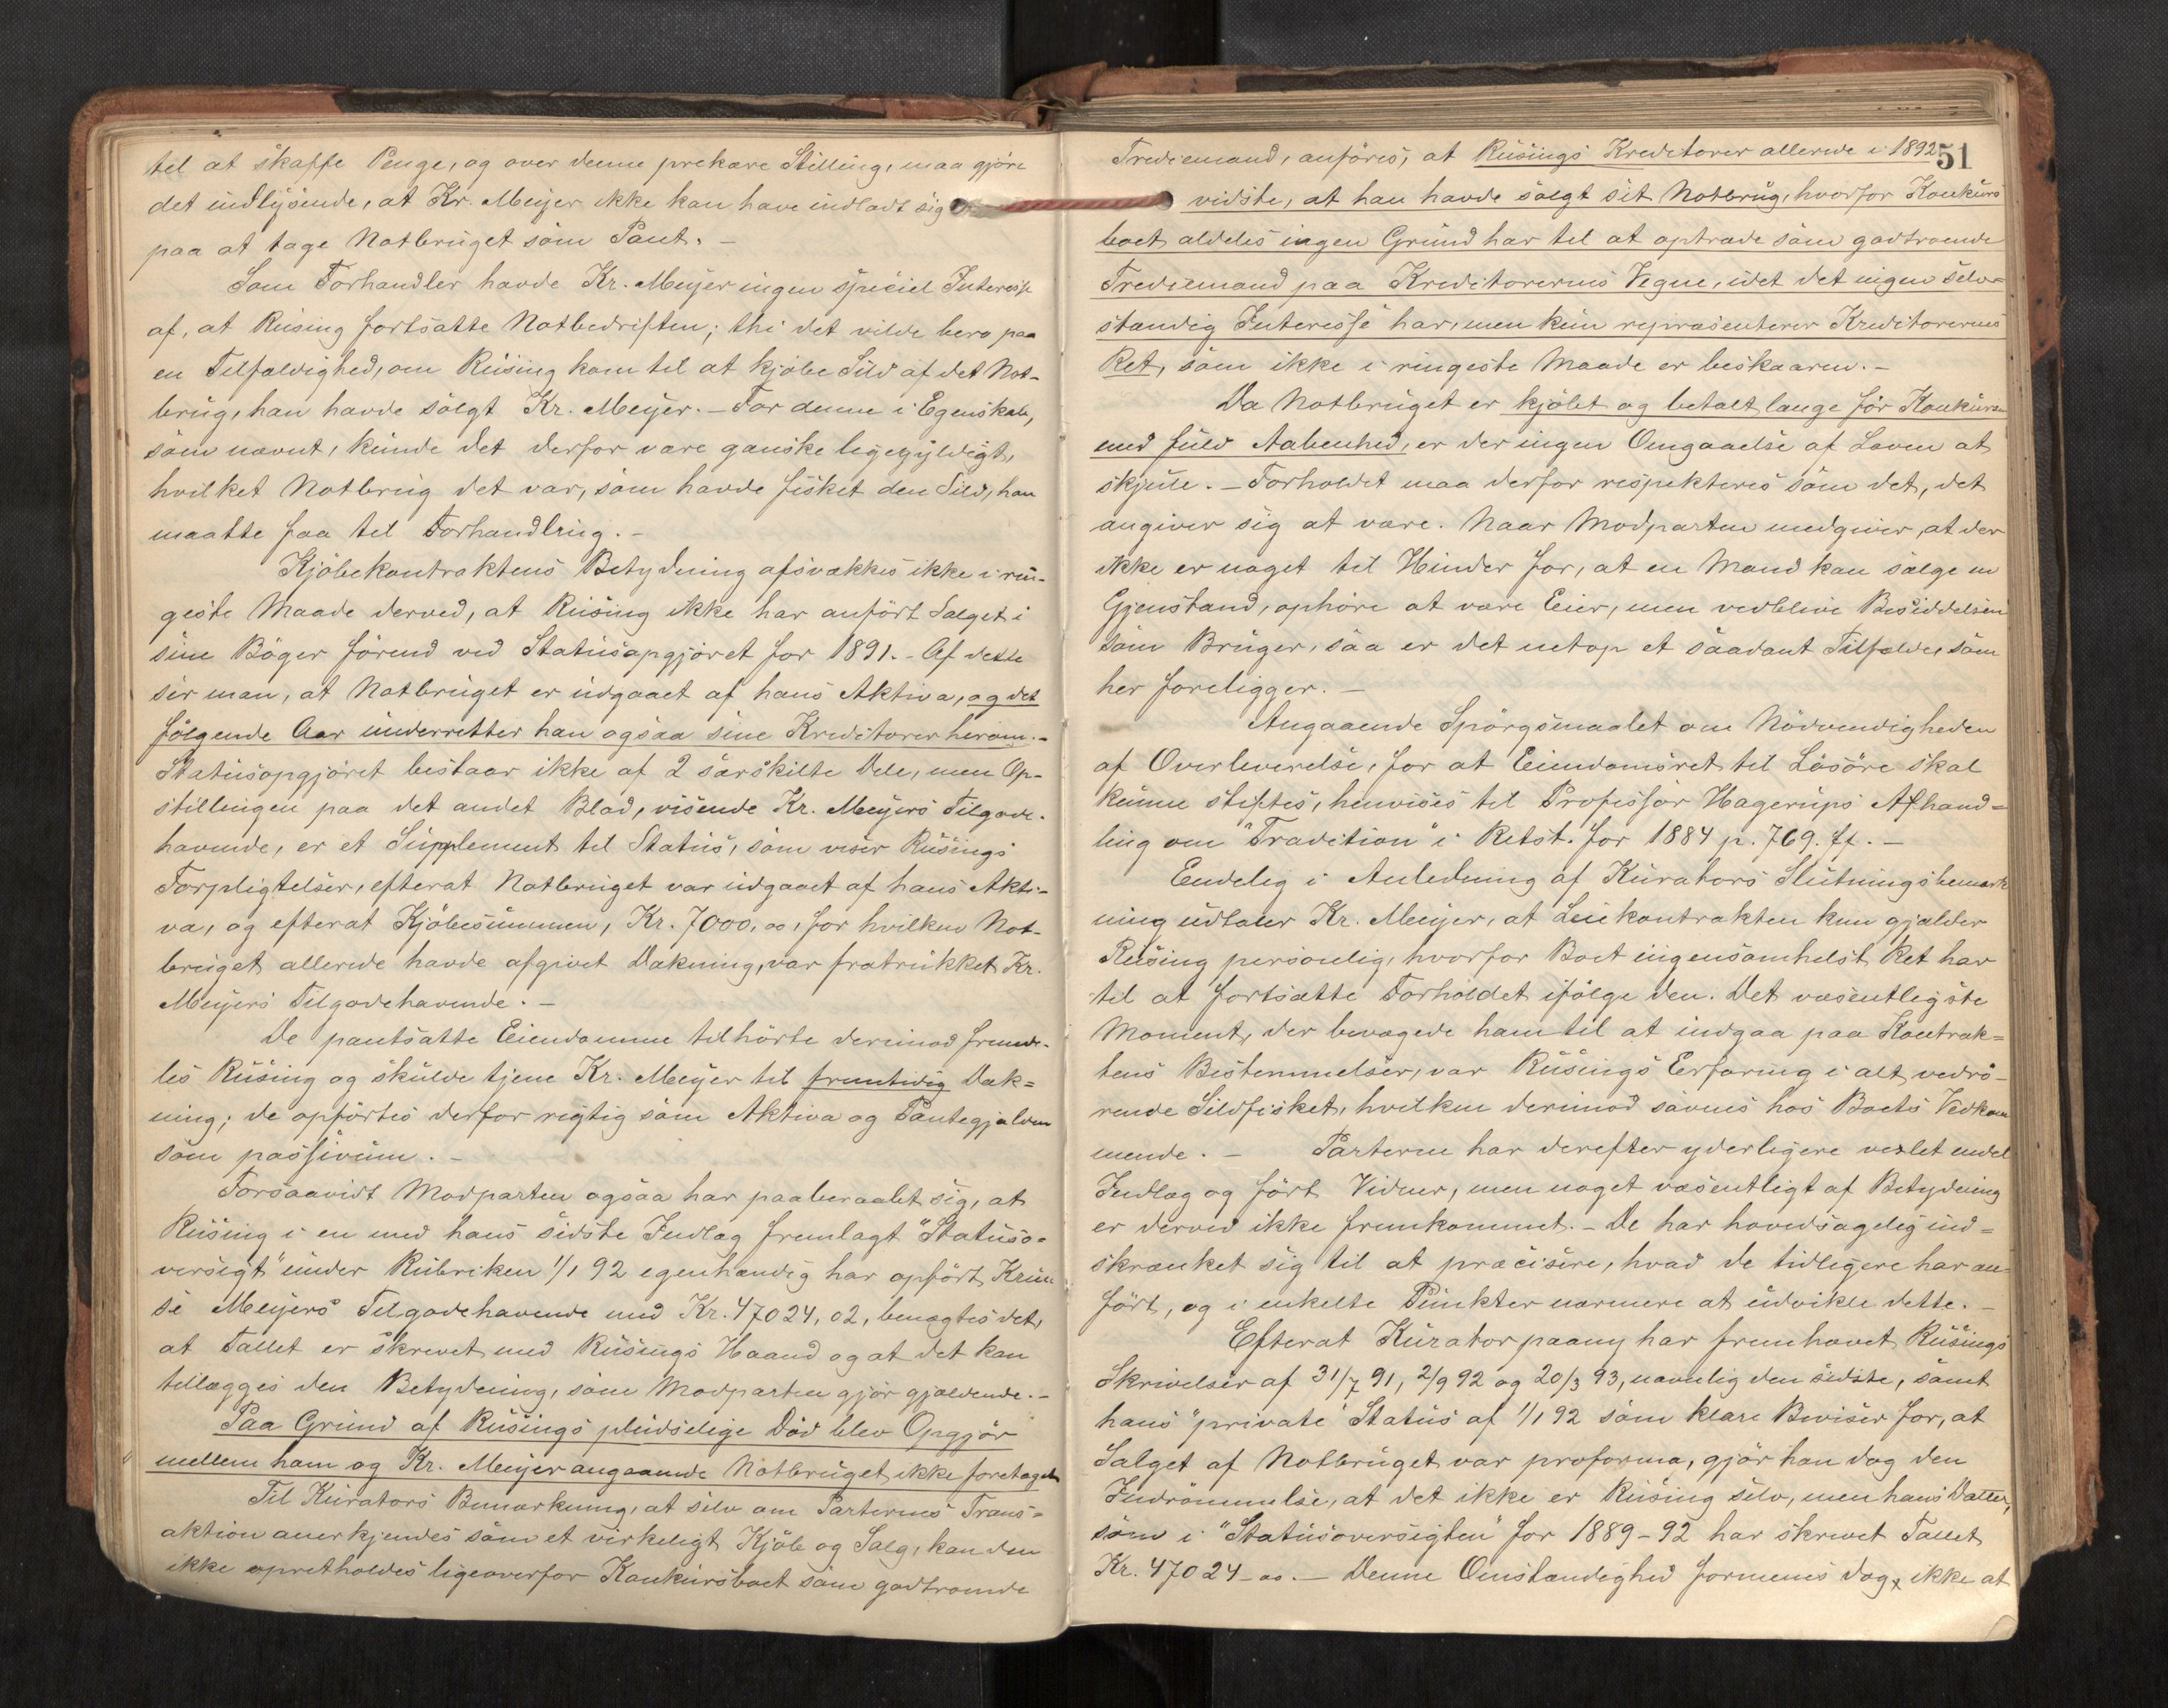 til at skaffe Penge, og over denne prekære Stilling, maa gjøre
det indlysende, at Kr. Meyer ikke kan have indladt sig
paa at tage Notbruget som Pant. –
Som Forhandler havde Kr. Meyer ingen speciel Interesse
af, at Rüsing fortsatte Notbedriften; thi det vilde bero paa
en Tilfældighed, om Rüsing kom til at kjøbe Sild af det Not-
brug, han havde solgt Kr. Meyer. – For denne i Egenskab,
som nævnt, kunde det derfor være ganske ligegyldigt,
hvilket Notbrug det var, som havde fisket den Sild, han
maatte faa til Forhandling. –
Kjøbekontraktens Betydning afsvækkes ikke i rin-
geste Maade derved, at Rüsing ikke har anført Salget i
sine Bøger førend ved Statusopgjøret for 1891. – Af dette
sér man, at Notbruget er udgaaet af hans Aktiva, og det
følgende Aar underretter han ogsaa sine Kreditorer herom. –
Statusopgjøret bestaar ikke af 2 særskilte Dele, men Op-
stillingen paa det andet Blad, visende Kr. Meyers Tilgode-
havende, er et Supplement til Status, som viser Rüsings
Forpligtelser, efterat Notbruget var udgaaet af hans Akti-
va, og efterat Kjøbesummen, Kr. 7000,00, for hvilken Not-
bruget allerede havde afgivet Dækning, var fratrukket Kr.
Meyers Tilgodehavende. –
De pantsatte Eiendomme tilhørte derimod fremde-
les Rüsing og skulde tjene Kr. Meyer til fremtidig Dæk-
ning; de opførtes derfor rigtig som Aktiva og Pantegjælden
som passivum. –
Forsaavidt Modparten ogsaa har paaberaabt sig, at
Rüsing i en med hans sidste Indlæg fremlagt "Statuso-
versigt" under Rubriken 1/1 92 egenhændig har opført
Meyers Tilgodehavende med Kr. 47024,02, benægtes det,
at Tallet er skrevet med Rüsings Haand og at det kan
tillægges den Betydning, som Modparten gjør gjældende. –
Paa Grund af Rüsings pludselige Død blev Opgjør
mellem ham og Kr. Meyer angaaende Notbruget ikke foretaget
Til Kurators Bemærkning, at selv om Parternes Trans-
aktion anerkjendes som et virkeligt Kjøb og Salg, kan den
ikke opretholdes ligeoverfor Konkursboet som godtroende
51
Trediemand, anføres, at Rüsings Kreditorer allerede i 1892
vidste, at han havde solgt sit Notbrug, hvorfor Konkurs
boet aldeles ingen Grund har til at optræde som godtroende
Trediemand paa Kreditorernes Vegne, idet det ingen selv-
stændig Interesse har, men kun repræsenterer Kreditorernes
Ret, som ikke i ringeste Maade er beskaaren. –
Da Notbruget er kjøbt og betalt længe før Konkursen
med fuld Aabenhed, er der ingen Omgaaelse af Loven at
skjule. – Forholdet maa derfor respekteres som det, det
angiver sig at være. Naar Modparten medgiver, at der
ikke er noget til Hinder for, at en Mand kan sælge en
Gjenstand, ophøre at være Eier, men vedblive Besiddelsen
som Bruger, saa er det netop et saadant Tilfælde, som
her foreligger. –
Angaaende Spørgsmaalet om Nødvendigheden
af Overleverelse, for at Eiendomsret til Løsøre skal
kunne stiftes, henvises til Professor Hagerups Afhand-
ling om "Tradition" i Retst. for 1884 p. 769. ff. –
Endelig i Anledning af Kurators Slutningsbemærk
ning udtaler Kr. Meyer, at Leiekontrakten kun gjælder
Rüsing personlig, hvorfor Boet ingensomhelst Ret har
til at fortsætte Forholdet ifølge den. Det væsentligste
Moment, der bevægede ham til at indgaa paa Kontrak-
tens Bestemmelser, var Rüsings Erfaring i alt vedrø-
rende Sildfisket, hvilken derimod savnes hos Boets Vedkom
mende. – Parterne har derefter yderligere vexlet endel
Indlæg og ført Vidner, men noget væsentligt af Betydning
er derved ikke fremkommet. – De har hovedsagelig ind-
skrænket sig til at præcisere, hvad de tidligere har an-
ført, og i enkelte Punkter nærmere at udvikle dette. –
Efterat Kurator paany har fremhævet Rüsings
Skrivelser af 31/7 91, 2/9 92 og 20/3 93, navnlig den sidste, samt
hans "private" Status af 1/1 92 som klare Beviser for, at
Salget af Notbruget var proforma, gjør han dog den
Indrømmelse, at det ikke er Rüsing selv, men hans Datter,
som i "Statusoversigten" for 1889-92 har skrevet Tallet
Kr. 47024-00. – Denne Omstændighed formenes dog, ikke at